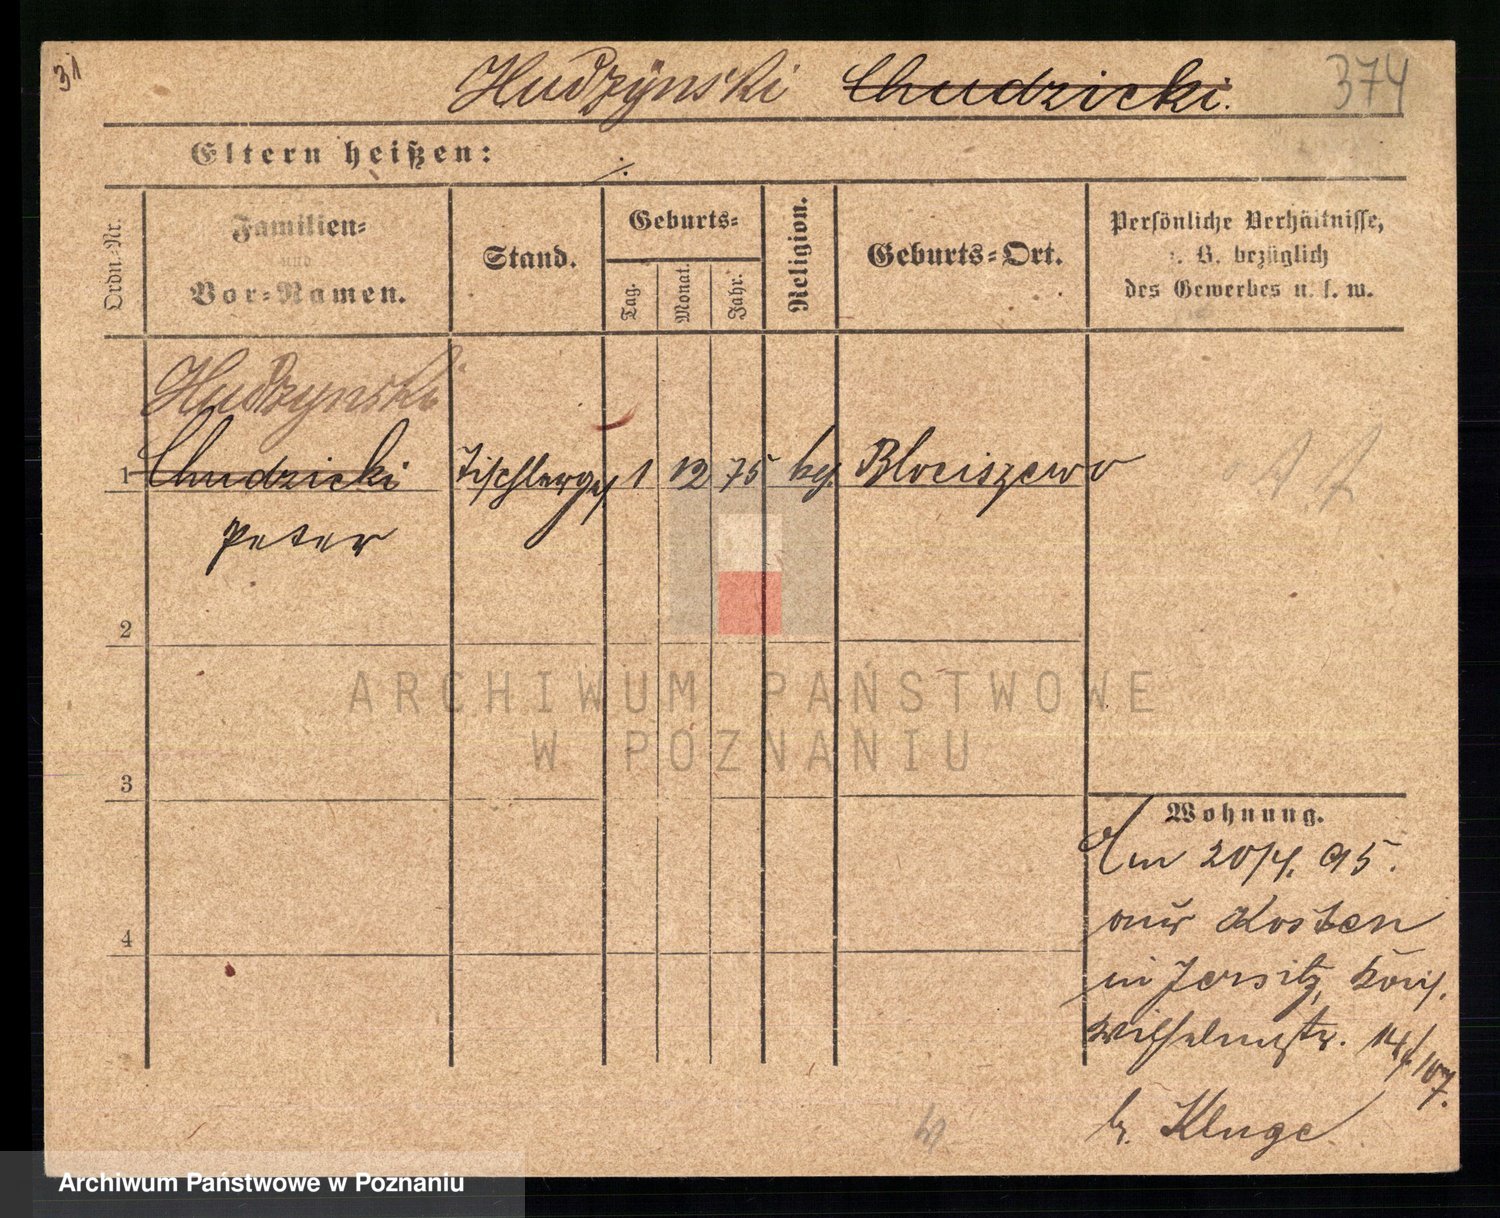 31
Hudzynski Chudzicki. 374
Eltern heißen: ./.
Ordn.-Nr.
Familien-
und
Vor-Namen.
Stand.
Geburts-
Tag.
Monat.
Jahr.
Religion.
Geburts-Ort.
Persönliche Verhältnisse,
z. B. bezüglich
des Gewerbes u. s. w.
Hudzynski
1 Chudzicki Tischlerges. 1 12 75 kg. Blociszewo
Peter
2
3
4
Wohnung.
Am 20/4. 95.
aus Kosten
in Jersitz, König.
Wilhelmstr. 14/107.
b. Kluge
ARCHIWUM PAŃSTWOWE
W POZNANIU
Archiwum Państwowe w Poznaniu